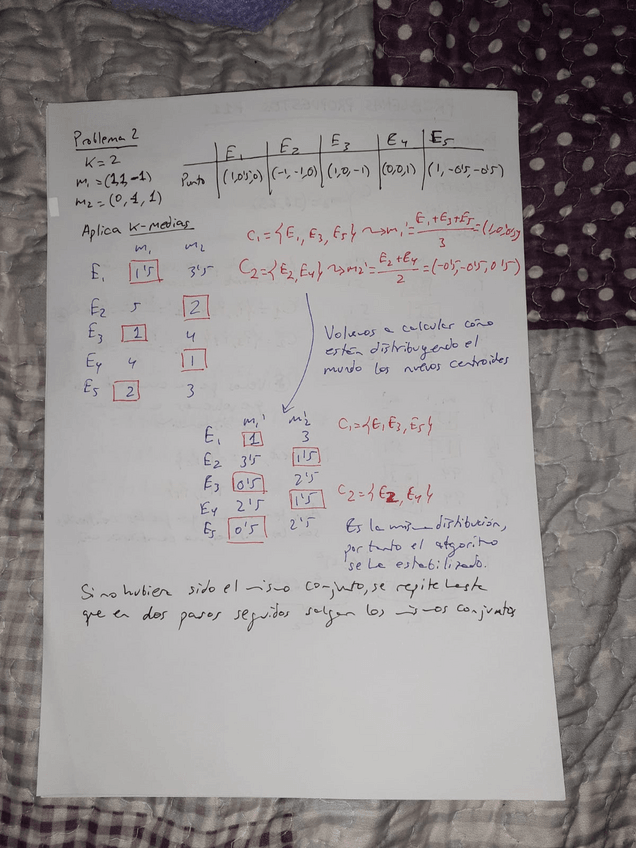 Problema 2
K=2
m₁=(1,1,-1)
m₂=(0,1,1)
E₁ E₂ E₃ E₄ E₅
Punto (1,0'5,0) (-1,-1,0) (1,0,-1) (0,0,1) (1,-0'5,-0'5)
Aplica K-medias
m₁ m₂
E₁ 1'5 3'5
E₂ 5 2
E₃ 1 4
E₄ 4 1
E₅ 2 3
C₁={E₁,E₃,E₅} ⇝ m₁'=(E₁+E₃+E₅)/3=(1,0,0'5)
C₂={E₂,E₄} ⇝ m₂'=(E₂+E₄)/2=(-0'5,-0'5,0'5)
Volvemos a calcular cómo
están distribuyendo el
mundo los nuevos centroides
m₁' m₂'
E₁ 1 3
E₂ 3'5 1'5
E₃ 0'5 2'5
E₄ 2'5 1'5
E₅ 0'5 2'5
C₁={E₁,E₃,E₅}
C₂={E₂,E₄}
Es la misma distibución,
por tanto el algoritmo
se ha estabilizado.
Si no hubiera sido el mismo conjunto, se repite hasta
que en dos pasos seguidos salgan los mismos conjuntos